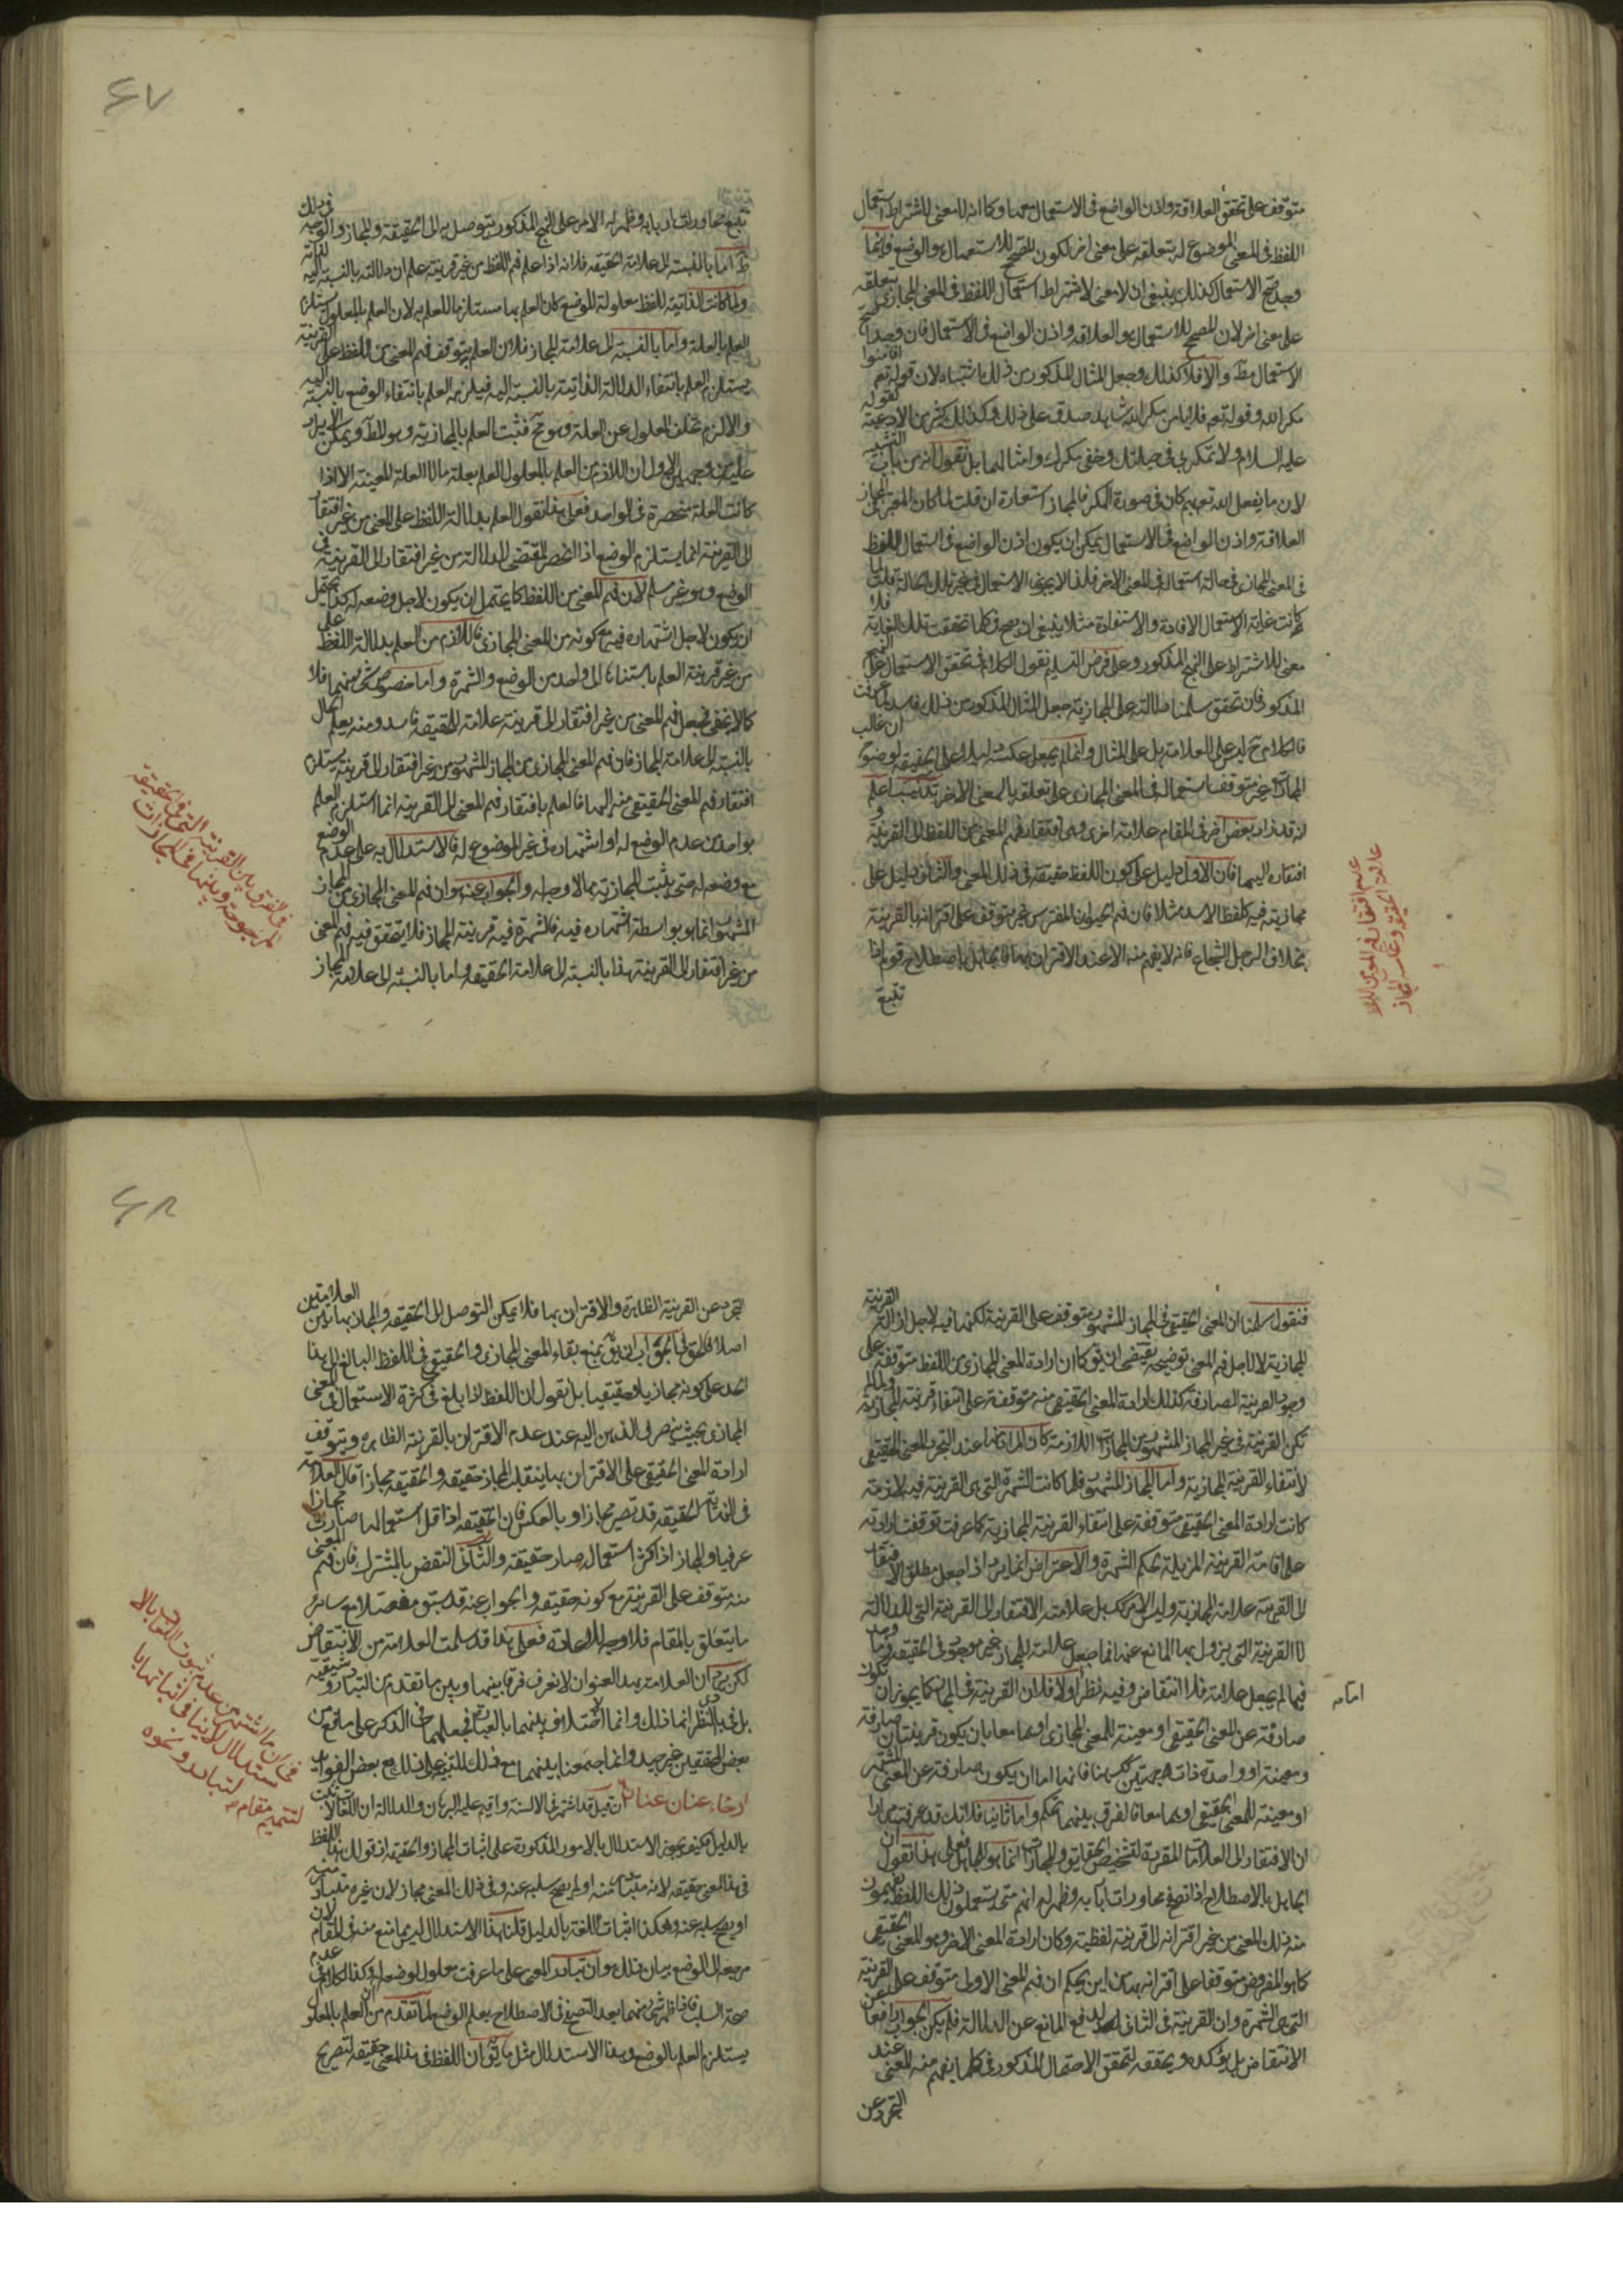 متوقف على تحقق العلاقة واذن الواضع فى الاستعمال معها وكما انه لا معنى لاشتراط استعمال
اللفظ فى المعنى الموضوع له بتعلقه على معنى اخر لكون المصحح للاستعمال هو الوضع فاينما
وجد صح الاستعمال كذلك ينبغى ان لا معنى لاشتراط استعمال اللفظ فى المعنى المجازى بتعلقه
على معنى اخر لان المصحح للاستعمال هو العلاقة واذن الواضع فى الاستعمال فان وجدا صح
الاستعمال مط والا فلا كذلك وجعل المثال المذكور من ذلك اشتباه لان قوله تعم افامنوا
مكر الله وقوله تعم فلا يامن مكر الله شاهد صدق على ذلك وكذلك كثير من الادعية كقوله
عليه السلام ولا تمكر بى فى حيلتك وخفى مكرك وامثالها بل نقول انه من باب التشبيه
لان ما يفعل الله تعم بهم كان فى صورة المكر فالمجاز استعارة ان قلت لما كان المعتبر فى المجاز
العلاقة واذن الواضع فى الاستعمال يمكن ان يكون اذن الواضع فى استعمال اللفظ
فى المعنى المجازى فى حالة استعماله فى المعنى الاخر فلذا لا يجوز الاستعمال فى غير تلك الحالة قلت لما
كانت غاية الاستعمال الافادة والاستفادة مثلا ينبغى ان يصح كلما تحققت تلك الغاية فلا
معنى للاشتراط على النهج المذكور وعلى فرض التسليم نقول الكلام فى تحقق الاستعمال على النهج
المذكور فان تحقق سلمنا دلالته على المجازية جعل المثال المذكور من ذلك فاسد لما عرفت
فالكلام ح ليس على العلامة بل على المثال وانما لم يجعل عكسه دليلا على الحقيقة لوضوح ان غالب
المجازات غير متوقف استعماله فى المعنى المجازى على تعلقه بالمعنى الاخر تذنيب اعلم
انه قد زاد بعض اخر فى المقام علامة اخرى وهى افتقار فهم المعنى من اللفظ الى القرينة و
افتقاره اليها فان الاول دليل على كون اللفظ حقيقة فى ذلك المعنى والثانى دليل على
مجازيته فيه كلفظ الاسد مثلا فان فهم الحيوان المفترس غير متوقف على اقترانه بالقرينة
بخلاف الرجل الشجاع فانه لا يفهم منه الا عند الاقتران بها فالجاهل باصطلاح قوم اذا
تتبع
عدم افتقار فهم المعنى من اللفظ
علامة الحقيقة وعكسه المجاز
٤٧
تتبع محاورات اربابه وظهر له الامر على النهج المذكور يتوصل به الى الحقيقة والمجاز والوجه فى ذلك
ظ اما بالنسبة الى علامة الحقيقة فلانه اذا علم فهم اللفظ من غير قرينة علم ان دلالته بالنسبة اليه لذاته
ولما كانت الذاتية للفظ معلولة للوضع كان العلم بها مستلزما للعلم به لان العلم بالمعلول يستلزم
العلم بالعلة واما بالنسبة الى علامة المجاز فلان العلم بتوقف فهم المعنى من اللفظ على القرينة
يستلزم العلم بانتفاء الدلالة الذاتية بالنسبة اليه فيلزمه العلم بانتفاء الوضع بالنسبة اليه
والا لزم تخلف المعلول عن العلة وهو مح فثبت العلم بالمجازية وهو المط ويمكن الايراد
عليه من وجهين الاول ان اللازم من العلم بالمعلول العلم بعلة ما لا العلة المعينة الا اذا
كانت العلة منحصرة فى الواحد فعلى هذا نقول العلم بدلالة اللفظ على المعنى من غير افتقار
الى القرينة انما يستلزم الوضع اذا انحصر المقتضى للدلالة من غير افتقار الى القرينة فى
الوضع وهو غير مسلم لان فهم المعنى من اللفظ كما يحتمل ان يكون لاجل وضعه له كذا يحتمل
ان يكون لاجل اشتهاره فيه مع كونه من المعنى المجازى فاللازم من العلم بدلالة اللفظ على
من غير قرينة العلم باستنادها الى واحد من الوضع والشهرة واما خصوص شىء منهما فلا
كما لا يخفى فجعل فهم المعنى من غير افتقار الى قرينة علامة للحقيقة فاسد ومنه يعلم الحال
بالنسبة الى علامة المجاز فان فهم المعنى المجازى من المجاز المشهور من غير افتقار الى قرينة يستلزم
افتقار فهم المعنى الحقيقى منه اليها فالعلم بافتقار فهم المعنى الى القرينة انما استلزم العلم
بواحد من عدم الوضع له او اشتهاره فى غير الموضوع له فالاستدلال به على عدم الوضع
مع وضعه له حتى يثبت المجازية مما لا وجه له والجواب عنه هو ان فهم المعنى المجازى من المجاز
المشهور انما هو بواسطة اشتهاره فيه فالشهرة فيه قرينة المجاز فلا يتحقق فيه فهم المعنى
من غير افتقار الى القرينة هذا بالنسبة الى علامة الحقيقة واما بالنسبة الى علامة المجاز
فى الفرق بين القرينة التى فى الحقيقة
المرجوحة وبينها فى المجازات
فنقول سلمنا ان المعنى الحقيقى فى المجاز المشهور متوقف على القرينة لكنها فيه لاجل ازالة القرينة
المجازية لا لاجل فهم المعنى توضيحه يقتضى ان يق كما ان ارادة المعنى المجازى من اللفظ متوقفة على
وجود القرينة الصارفة كذلك ارادة المعنى الحقيقى منه متوقفة على انتفاء قرينة المجازية ولما لم
تكن القرينة فى غير المجاز المشهور من المجازات اللازمة كان المراد منها عند التجرد المعنى الحقيقى
لانتفاء القرينة المجازية واما المجاز المشهور فلما كانت الشهرة التى هى القرينة فيه لازمة
كانت ارادة المعنى الحقيقى متوقفة على انتفاء القرينة المجازية كما عرفت توقفت ارادته
على اقامة القرينة المزيلة لحكم الشهرة والاعتراض انما يرد اذا جعل مطلق الافتقار
الى القرينة علامة المجازية وليس الامر كك بل علامته الافتقار الى القرينة التى للدلالة
لا القرينة التى يزول بها المانع عنه فما جعل علامة للمجاز غير موجود فى الحقيقة وما وجد
فيها لم يجعل علامة فلا انتقاض وفيه نظر اما اولا فلان القرينة فى المجاز كما يجوز ان تكون
صارفة عن المعنى الحقيقى او معينة للمعنى المجازى او هما معا بان يكون قرينتان صارفة
ومعينة او واحدة ذات جهتين كك هنا فانها اما ان يكون صارفة عن المعنى المشتهر
او معينة للمعنى الحقيقى او هما معا فالفرق بينهما تحكم واما ثانيا فلانك قد عرفت مرارا
ان الافتقار الى العلامات المقررة لتشخيص الحقايق والمجازات انما هو للجاهل فعلى هذا نقول ان
الجاهل بالاصطلاح اذا تصفح محاورات اربابه وظهر له انهم متى يستعملون ذلك اللفظ يفهمون
منه ذلك المعنى من غير اقترانه الى قرينة لفظية وكان ارادة المعنى الاخر وهو المعنى الحقيقى
كما هو المفروض متوقفا على اقترانه بها من اين يحكم ان فهم المعنى الاول متوقف على القرينة
التى هى الشهرة وان القرينة فى الثانى لدفع المانع عن الدلالة فلم يكن الجواب دافعا عن
الانتقاض بل يؤكده ويحققه لتحقق الاحتمال المذكور فى كلما يفهم منه المعنى عند
التجرد عن
اما
٤٨
التجرد عن القرينة الظاهرة والاقتران بها فلا يمكن التوصل الى الحقيقة والمجاز بهاتين العلامتين
اصلا فالحق فى الجواب ان يق بمنع بقاء المعنى المجازى والحقيقى فى اللفظ البالغ الى هذا
الحد على كونه مجازيا وحقيقيا بل نقول ان اللفظ اذا بلغ فى كثرة الاستعمال فى المعنى
المجازى بحيث ينصرف الذهن اليه عند عدم الاقتران بالقرينة الظاهرة ويتوقف
ارادة المعنى الحقيقى على الاقتران بها ينقلب المجاز حقيقة والحقيقة مجازا قال العلامة
فى النهاية الحقيقة قد تصير مجازا وبالعكس فان الحقيقة اذا قل استعمالها صارت مجازا
عرفيا والمجاز اذا كثر استعماله صار حقيقة والثانى النقض بالمشترك فان فهم المعنى
منه متوقف على القرينة مع كونه حقيقة والجواب عنه قد سبق مفصلا مع سائر
ما يتعلق بالمقام فلا وجه للاعادة فعلى هذا قد سلمت العلامة من الانتقاض
لكن يرد ان العلامة بهذا العنوان لا نعرف فرقا بينها وبين ما تقدم من التبادر
بعض المحققين غير جيد وانما جمعنا بينهما مع ذلك للتنبيه على ذلك مع بعض الفوائد
ارخاء عنان عنان ان قيل قد اشتهر فى الالسنة واقيم عليه البرهان والدلالة ان اللغة لا تثبت
بالدليل فكيف يجوز الاستدلال بالامور المذكورة على اثبات المجاز والحقيقة اذ قولك هذا اللفظ
فى هذا المعنى حقيقة لانه متبادر منه او لم يصح سلبه عنه وفى ذلك المعنى مجاز لان غيره متبادر منه
او يصح سلبه عنه وهكذا اثبات اللغة بالدليل قلنا هذا الاستدلال ليس مما منع منه فى المقام لان
مرجعه الى الوضع بيان ذلك ان تبادر المعنى على ما عرفت معلول لوضعه له وكذا الكلام فى عدم
صحة السلب فاذا ظهر شىء منهما بعد التصفح فى الاصطلاح يعلم الوضع لما تقدم من ان العلم بالمعلول
يستلزم العلم بالوضع وهذا الاستدلال مثل ما يق ان اللفظ فى هذا المعنى حقيقة لتصريح
فى ان ما اشتهر من عدم ثبوت اللغة بالاستدلال لا ينافى اثباتها بالتبادر ونحوه
لتتميم مقام